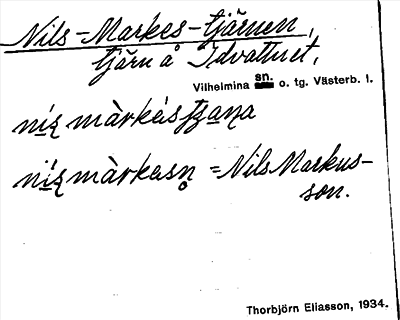 Nils-Markes-tjärnen,
tjärn å Idvattnet,
Vilhelmina sn. o. tg. Västerb. l.
màrkas
màrkasn = Nils Markus-
son.
Thorbjörn Eliasson, 1934.